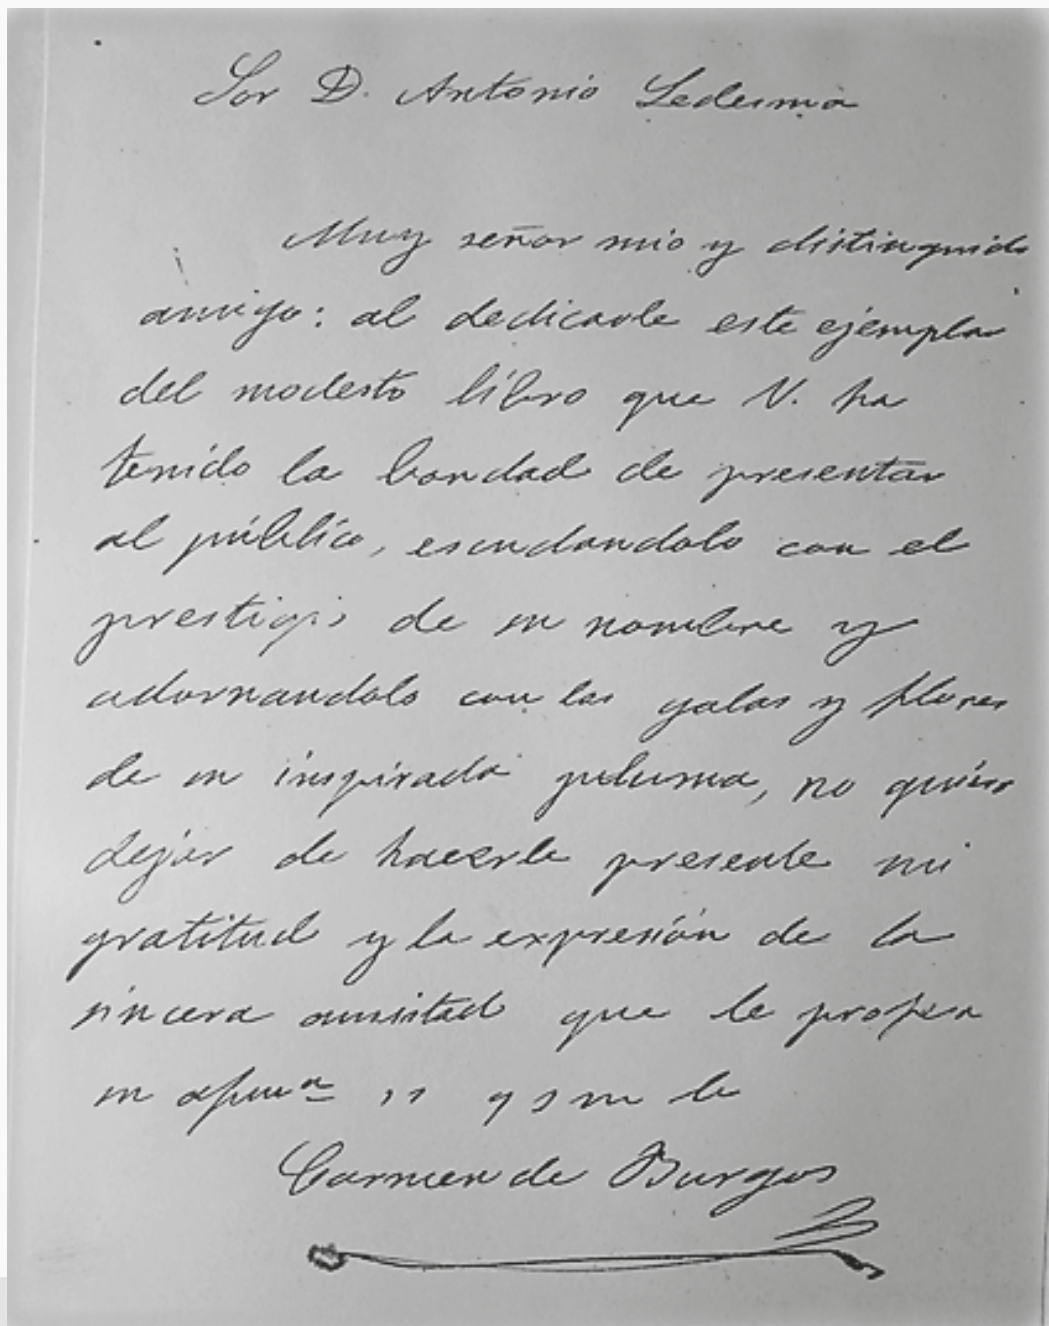 Sor D. Antonio Ledesma
Muy señor mio y distinguido
amigo: al dedicarle este ejemplar
del modesto libro que V. ha
tenido la bondad de presentar
al público, escudandolo con el
prestigio de su nombre y
adornandolo con las galas y flores
de su inspirada pluma, no quiero
dejar de hacerle presente mi
gratitud y la expresión de la
sincera amistad que le profesa
su afma ss q s m b
Carmen de Burgos